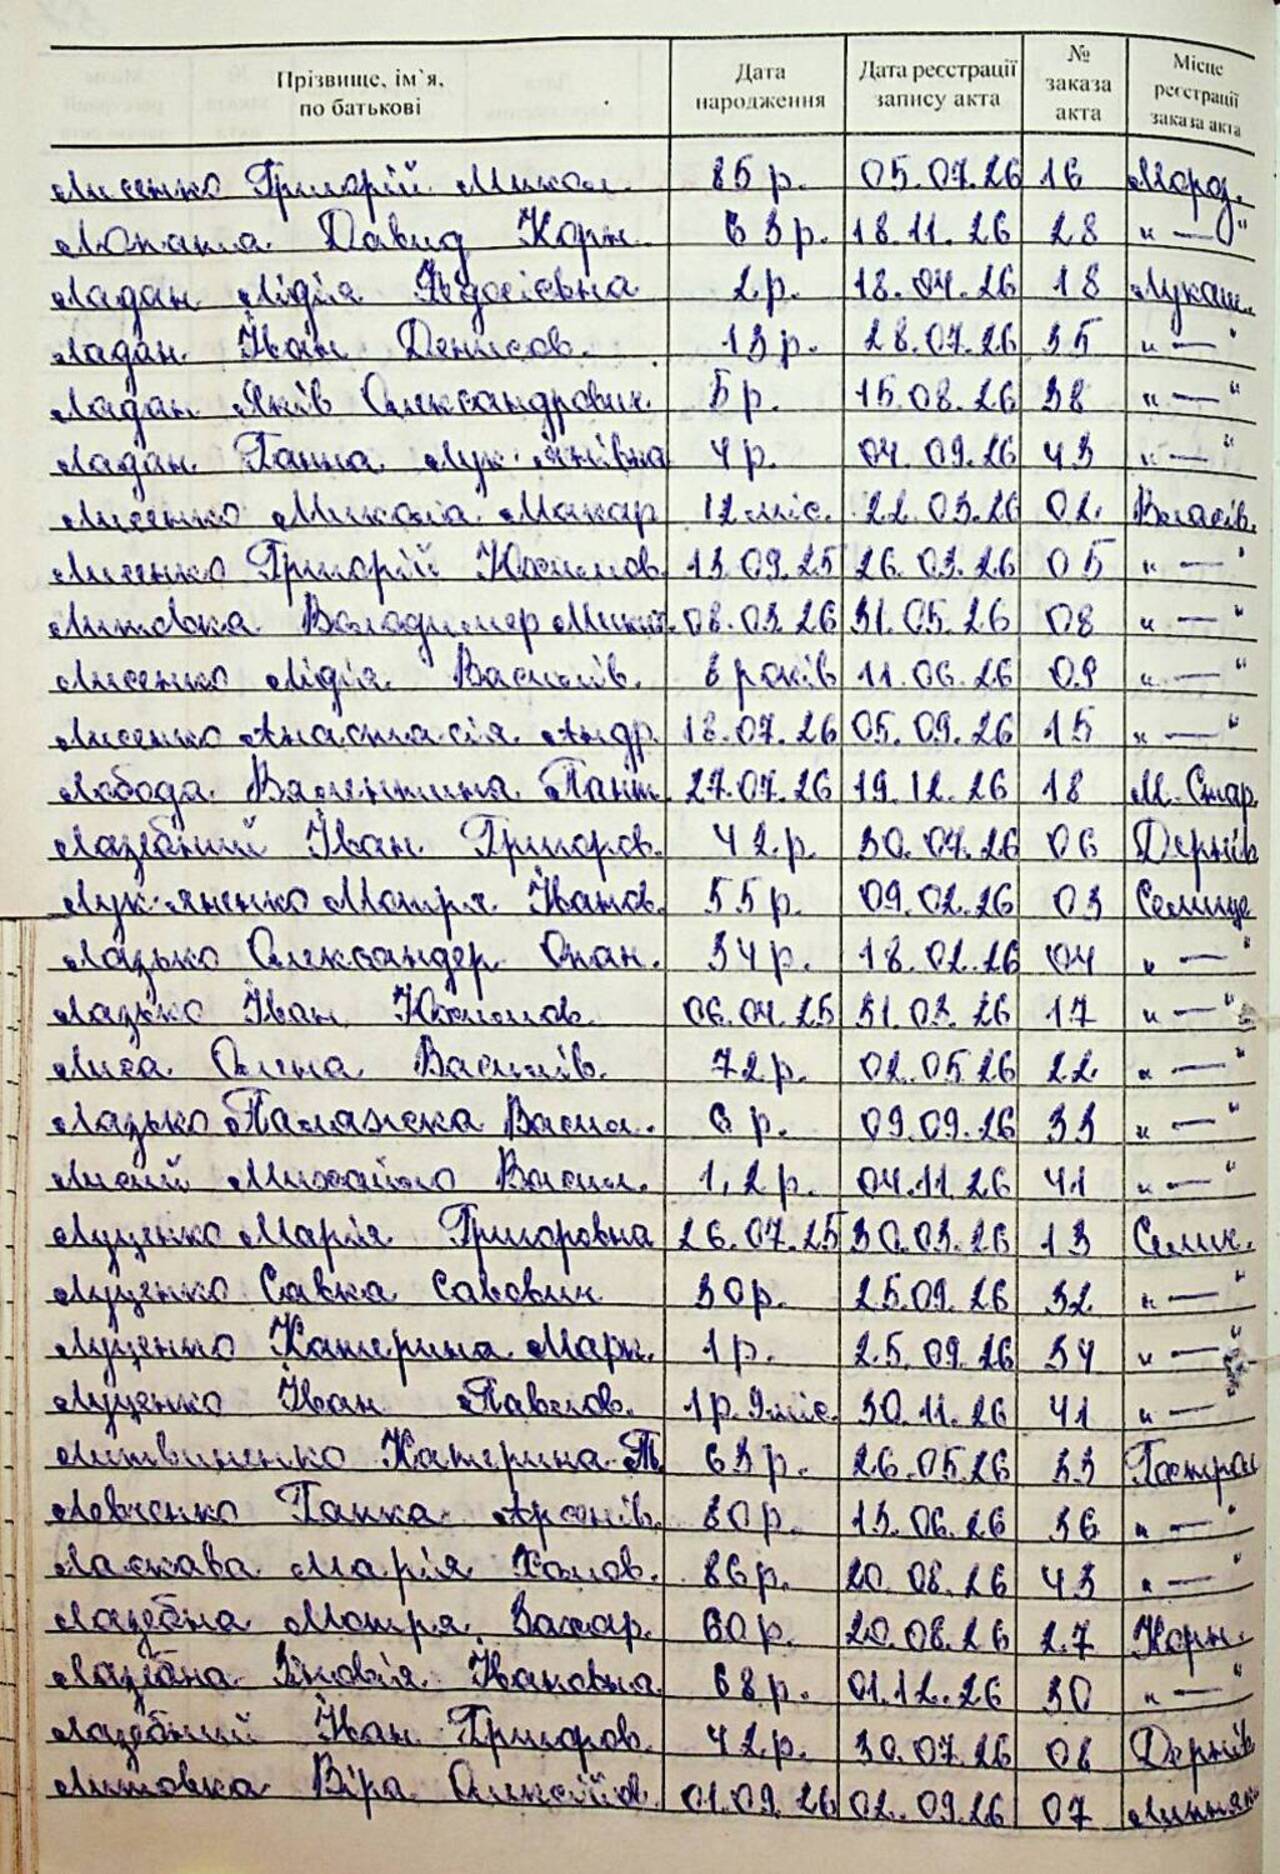 Прізвище, ім`я, по батькові Дата народження Дата реєстрації запису акта № заказа акта Місце реєстрації заказа акта
Лисенко Григорій Микол. 85 р. 05.07.26 16 Мороз.
Лопата Давид Корн. 63 р. 18.11.26 28 " — "
Ладан Лідія Федосієвна 2 р. 18.04.26 18 Лукаш.
Ладан Іван Денисов. 13 р. 28.07.26 35 " — "
Ладан Яків Олександрович. 5 р. 15.08.26 38 " — "
Ладан Ганна Лук'янівна 4 р. 04.09.26 43 " — "
Лисенко Микола Макар 12 міс. 22.03.26 02. Власів.
Лисенко Григорій Юхимов. 13.09.25 26.03.26 05 " — "
Литовка Володимер 08.03.26 31.05.26 08 " — "
Лисенко Лідія Василів. 8 років 11.06.26 09 " — "
Лисенко Анастасія Андр 18.07.26 05.09.26 15 " — "
Лобода Валентина Пант. 27.07.26 19.12.26 18 М. Стар.
Лазебний Іван Григоров. 42 р. 30.07.26 06 Дернів
Лук'яненко Мотря Іванов. 55 р. 09.02.26 03 Селище
Лазько Олександер Опан. 34 р. 18.02.26 04 " — "
Лазько Іван Юхимов. 06.04.25 31.03.26 17 " — "
Лиса Олена Василів. 72 р. 02.05.26 22. " — "
Лазько Палажка Васил. 6 р. 09.09.26 33 " — "
Лисий Михайло Васил. 1,2 р. 04.11.26 41 " — "
Луценко Марія Григоровна 26.07.25 30.03.26 13 Селич.
Луценко Савка Савович 30 р. 25.09.26 32 " — "
Луценко Катерина Марк. 1 р. 25.09.26 34 " — "
Луценко Іван Павлов. 1 р. 9 міс. 30.11.26 41 " —
Литвиненко Катерина 63 р. 26.05.26 33 Гостро
Левченко Ганка Арсенів. 80 р. 13.06.26 36 " — "
Ласкава Марія Хомов. 86 р. 20.08.26 43 " — "
Лазебна Мотря Захар. 60 р. 20.08.26 27 Корн.
Лазебна Зіновія Івановна 68 р. 01.12.26 30 " — "
Лазебний Іван Григоров. 42 р. 30.07.26 08 Дернів
Литовка Віра Олексіїв. 01.09.26 02.09.26 07